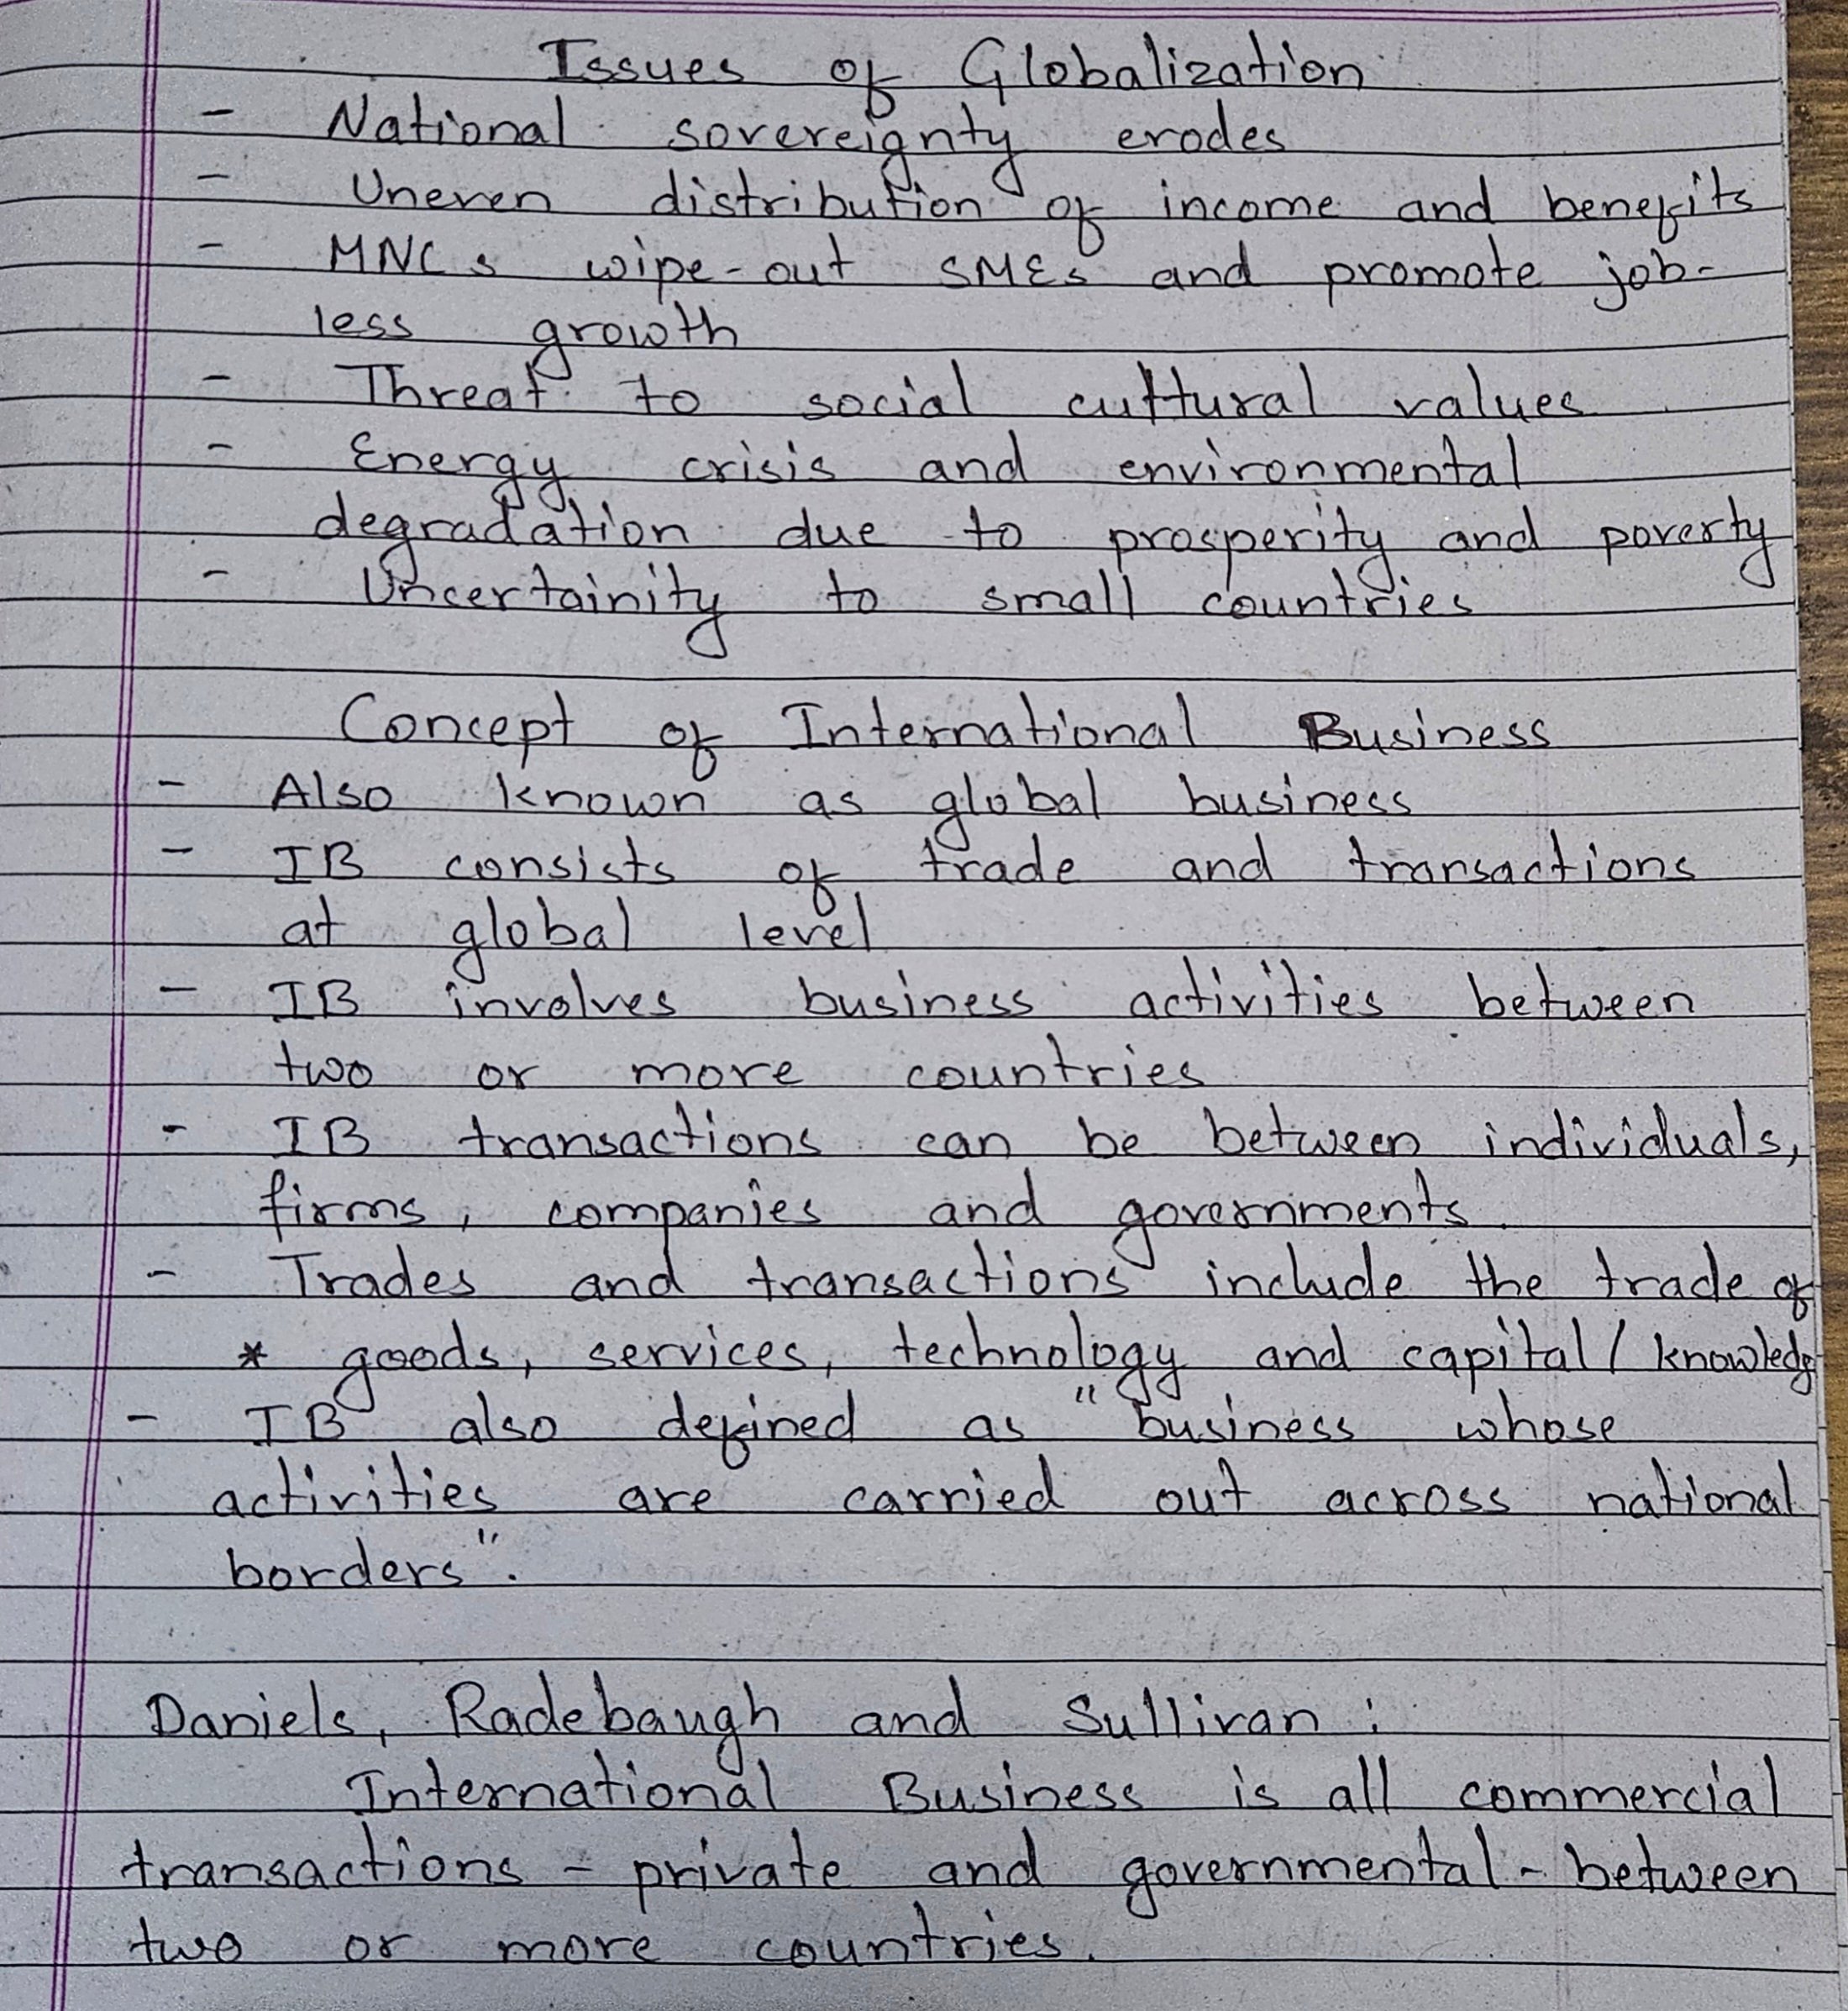 Issues of Globalization
- National sovereignty erodes
- Uneven distribution of income and benefits
- MNCs wipe-out SMEs and promote job-
less growth
- Threat to social cultural values
- Energy crisis and environmental
degradation due to prosperity and poverty
- Uncertainity to small countries
Concept of International Business
- Also known as global business
- IB consists of trade and transactions
at global level
- IB involves business activities between
two or more countries
- IB transactions can be between individuals,
firms, companies and governments
- Trades and transactions include the trade of
* goods, services, technology and capital/knowledge
- IB also defined as "business whose
activities are carried out across national
borders".
Daniels, Radebaugh and Sullivan:
International Business is all commercial
transactions - private and governmental - between
two or more countries.